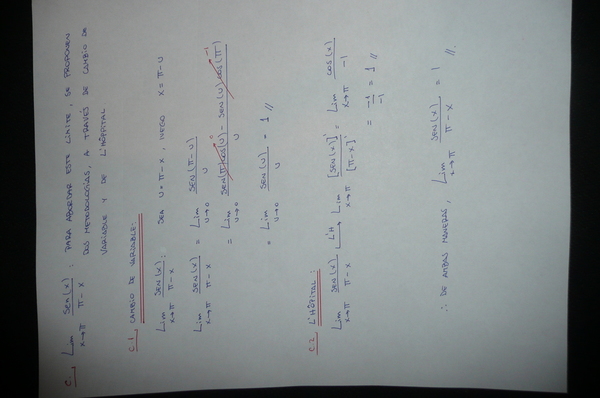 C. Lim x→π sen(x) / π - x : PARA ABORDAR ESTE LÍMITE, SE PROPONEN
DOS METODOLOGÍAS, A TRAVÉS DE CAMBIO DE
VARIABLE Y DE L'HÔPITAL
C.1 CAMBIO DE VARIABLE:
Lim x→π sen(x) / π - x : SEA u = π - x, LUEGO x = π - u
Lim x→π sen(x) / π - x = Lim u→0 sen(π - u) / u
= Lim u→0 sen(π)cos(u) - sen(u)cos(π) / u
0 -1
= Lim u→0 sen(u) / u = 1 //
C.2 L'HÔPITAL:
Lim x→π sen(x) / π - x L'H → Lim x→π [sen(x)]' / [π - x]' = Lim x→π cos(x) / -1
= -1 / -1 = 1 //
∴ DE AMBAS MANERAS, Lim x→π sen(x) / π - x = 1 //.